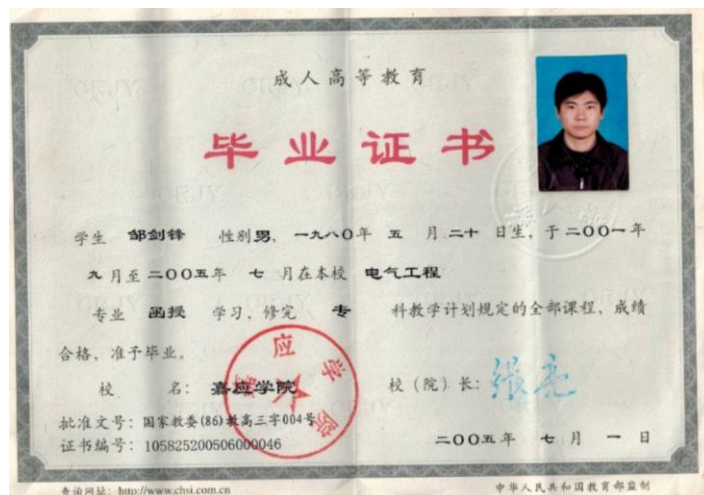 成人高等教育
毕业证书
学生 邹剑锋 性别男, 一九八〇年 五 月二十 日生, 于二〇〇一年
九月至二〇〇五年 七 月在本校 电气工程
专业 函授 学习, 修完 专 科教学计划规定的全部课程, 成绩
合格, 准予毕业。
校 名: 嘉应学院 校(院)长: 张亮
批准文号: 国家教委(86)教高三字004号
证书编号: 105825200506000046 二〇〇五年 七 月 一 日
查询网址: http://www.chsi.com.cn 中华人民共和国教育部监制